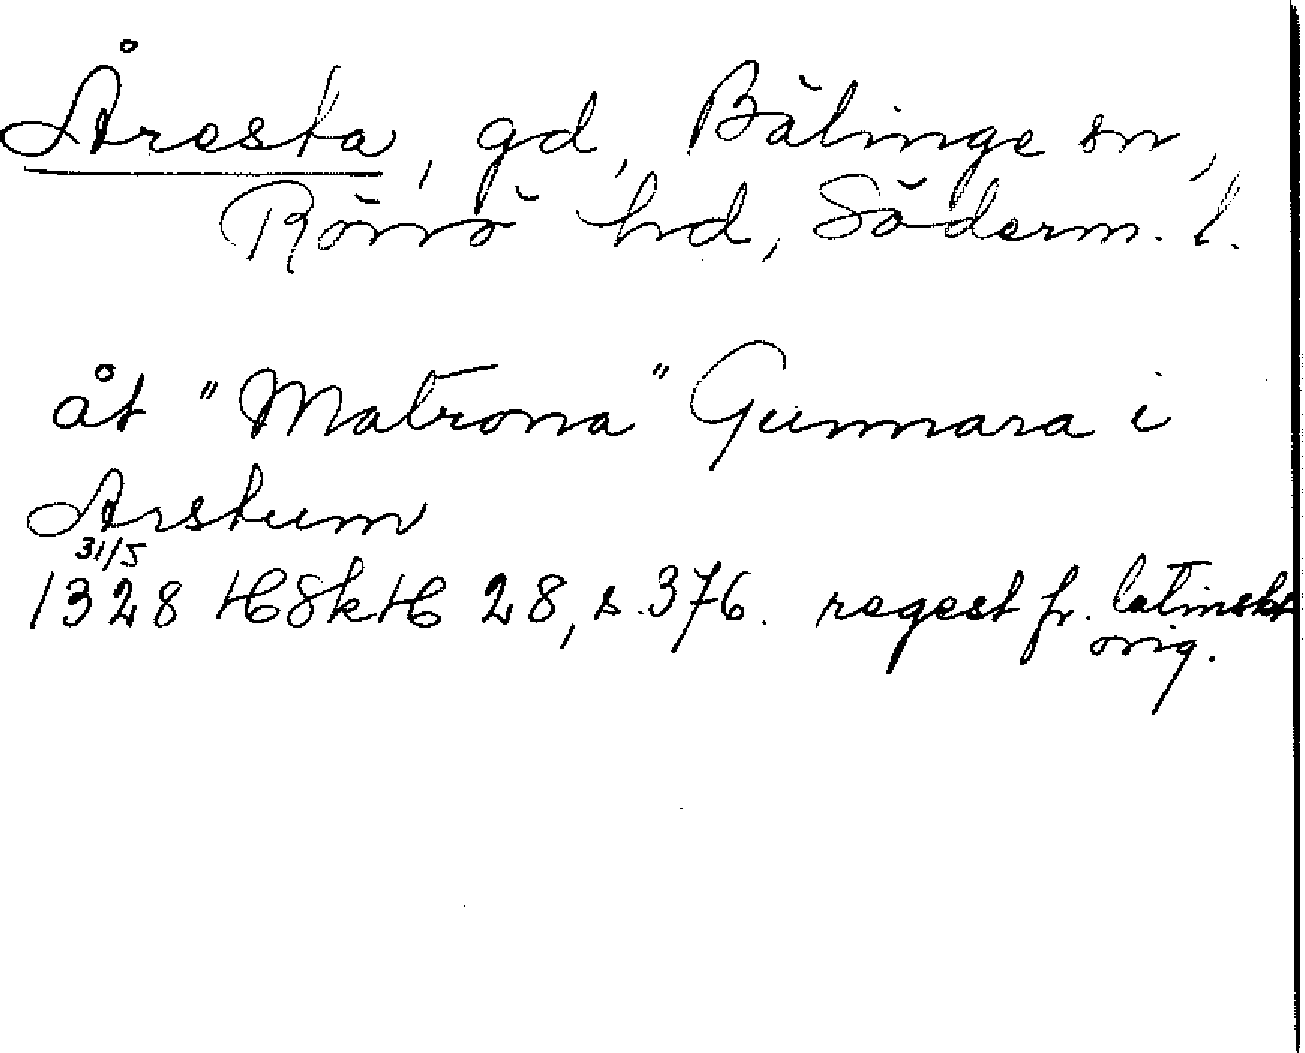 Åresta, gd, Bälinge sn,
Rönö hd, Söderm. l.
åt "Matrona" Gunnara i
Arstum
31/5
1328 HSkH 28, s. 376. regest fr. latinskt
orig.